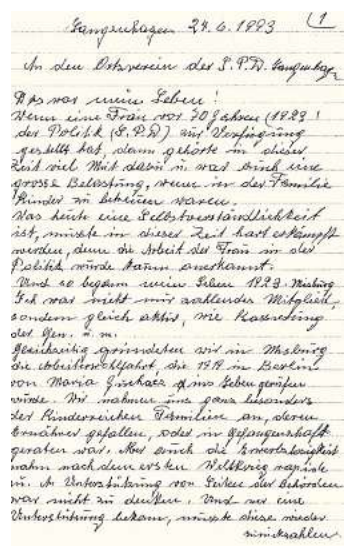 Langenhagen 24.6.1993 (1
An den Ortsverein der S.P.D. Langenhag.
Das war mein Leben!
Wenn eine Frau vor 70 Jahren (1923!
der Politik (S.P.D) zur Verfügung
gestellt hat, dann gehörte in dieser
Zeit viel Mut dazu u. war auch eine
grosse Belastung, wenn in der Familie
Kinder zu betreuen waren.
Was heute eine Selbstverständlichkeit
ist, musste in dieser Zeit hart erkämpft
werden, denn die Arbeit der Frau in der
Politik wurde kaum anerkannt.
Und so begann mein Leben 1923. Misburg
Ich war nicht nur zahlendes Mitglied,
sondern gleich aktiv, wie Kassierung
der Gen. u. m.
Gleichzeitig gründeten wir in Misburg
die Arbeiterwohlfahrt, die 1919 in Berlin
von Maria Juchacz ins Leben gerufen
wurde. Wir nahmen uns ganz besonders
der Kinderreichen Familien an, deren
Ernährer gefallen, oder in Gefangenschaft
geraten war. Aber auch die Erwerbslosigkeit
nahm nach dem ersten Weltkrieg rapide
zu. An Unterstützung von Seiten der Behörden
war nicht zu denken. Und wer eine
Unterstützung bekam, musste diese wieder
zurückzahlen